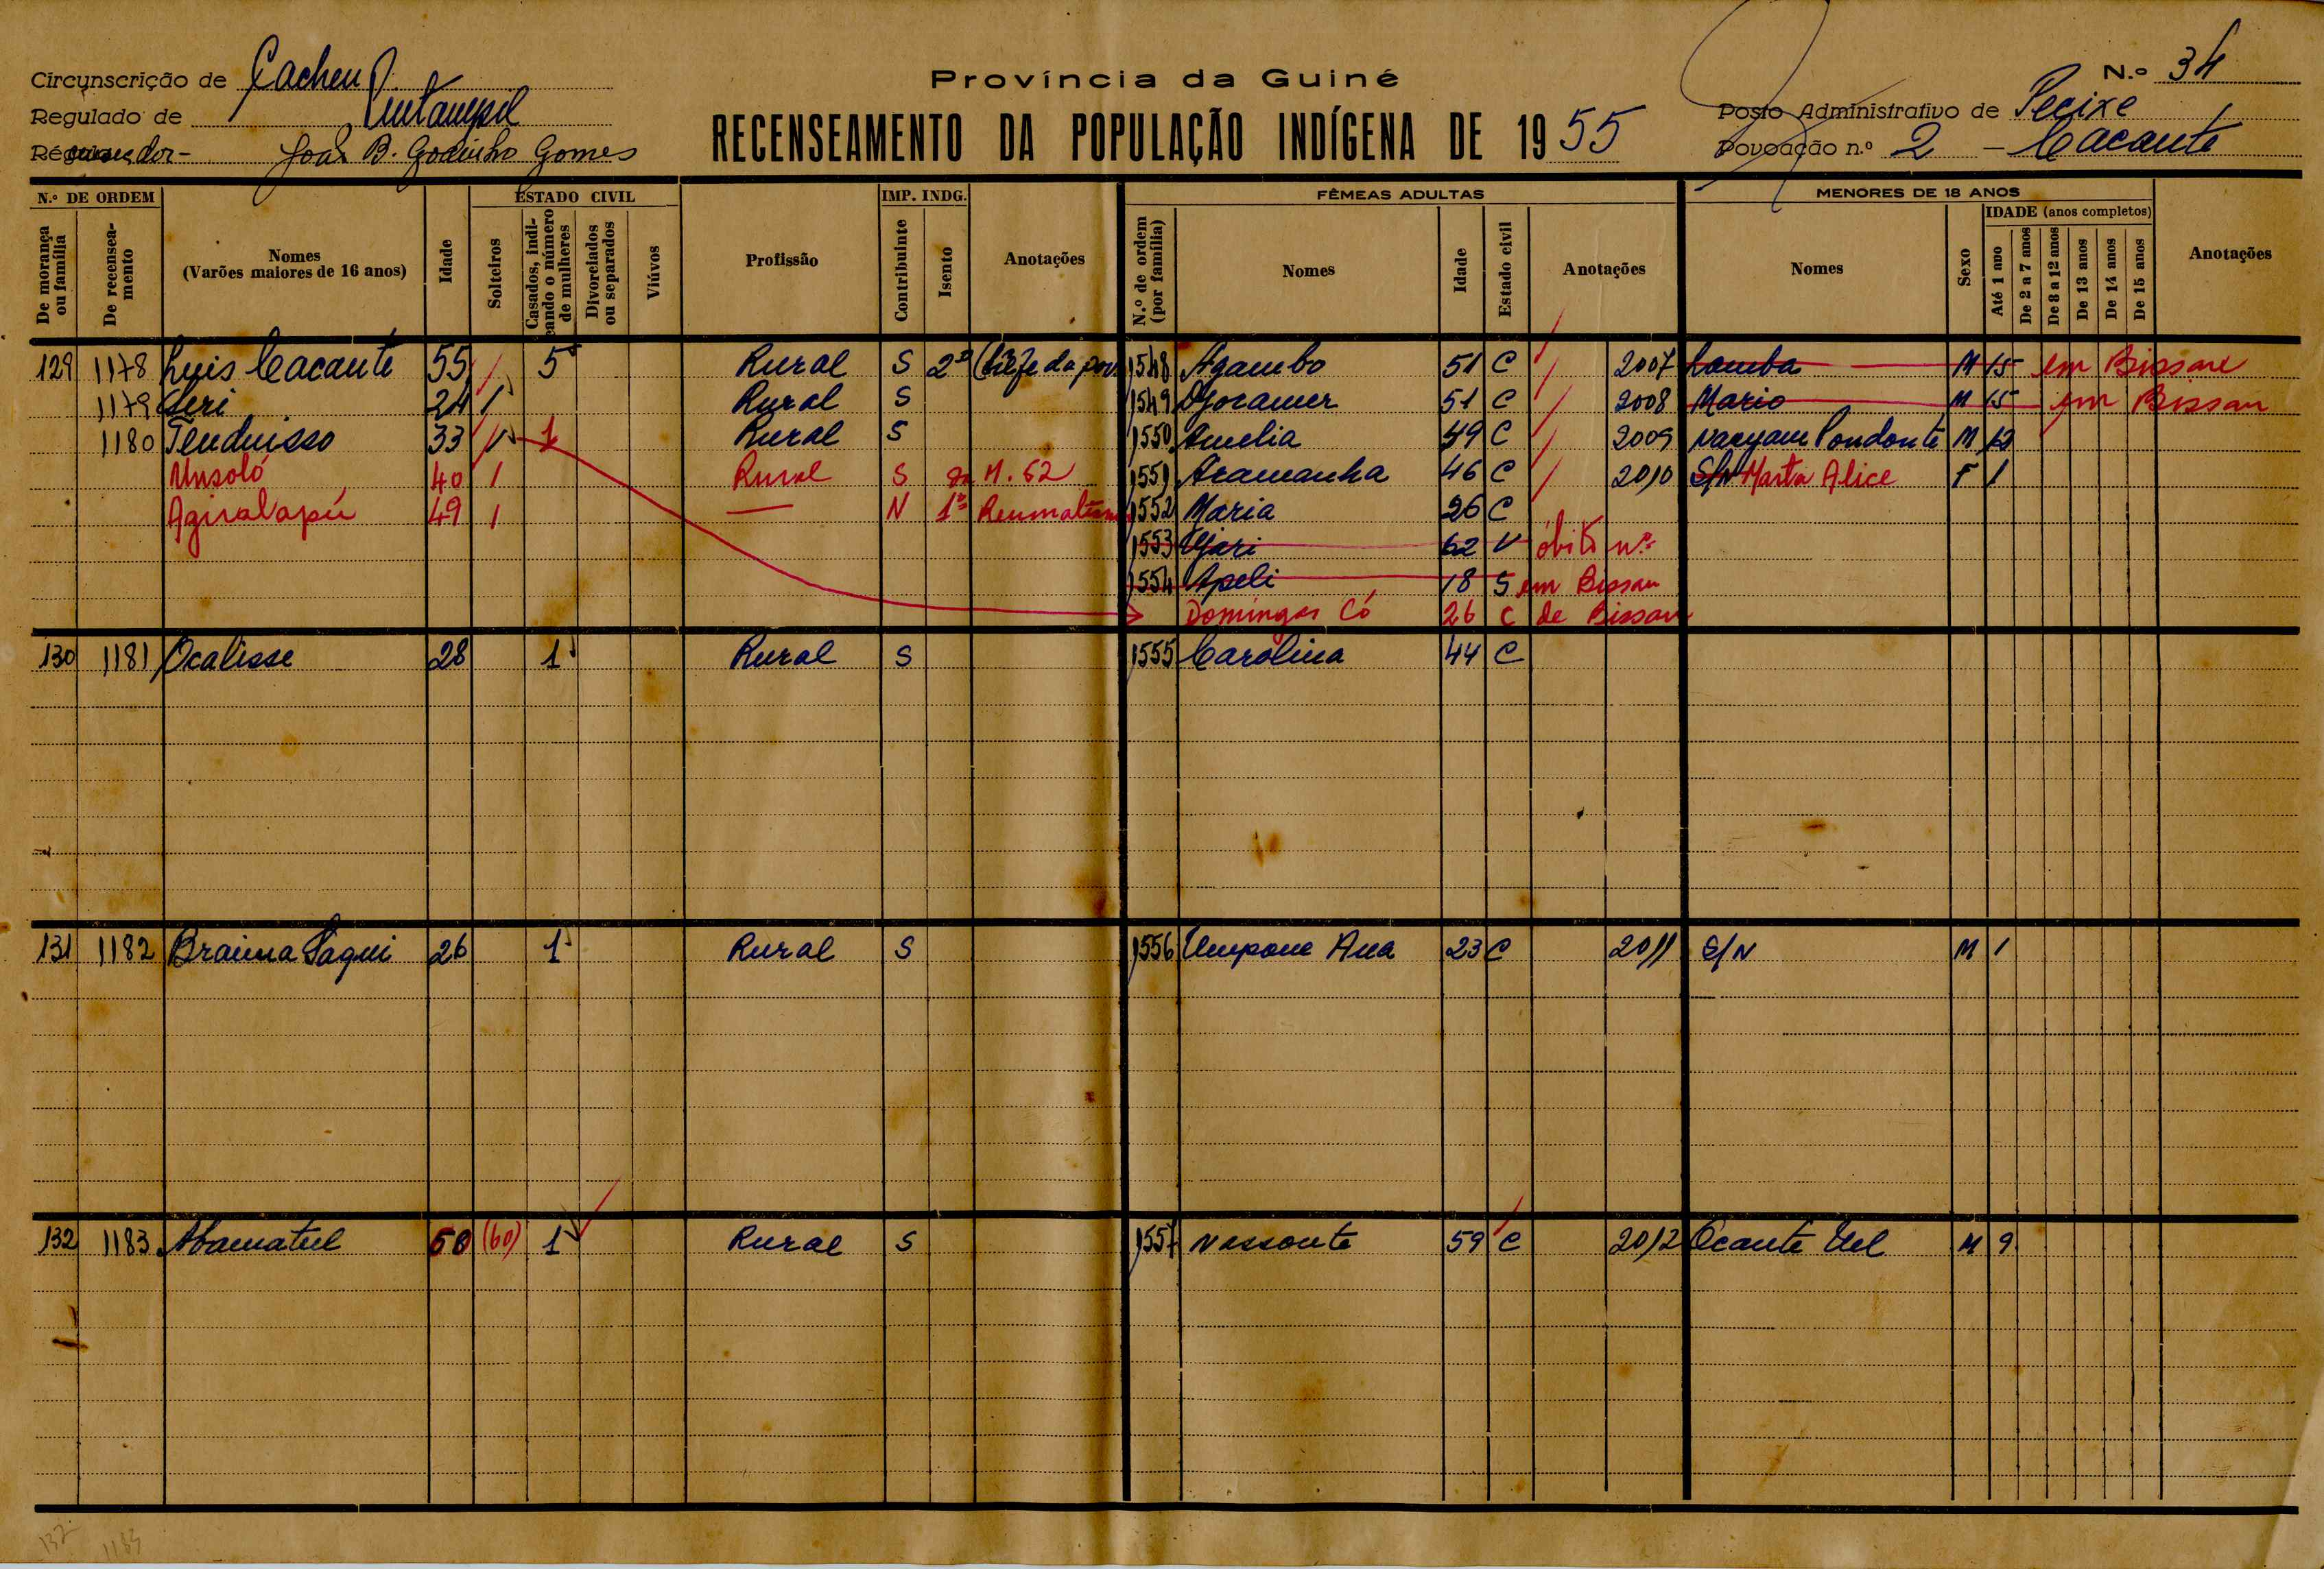 Circunscrição de Cacheu
Província da Guiné
N.º 34
Regulado de Intampil
RECENSEAMENTO DA POPULAÇÃO INDÍGENA DE 1955
Posto Administrativo de Pecixe
João B. Godinho Gomes
Povoação n.º 2 - Cacante
N.º DE ORDEM
De morança ou família
De recenseamento
Nomes
(Varões maiores de 16 anos)
Idade
ESTADO CIVIL
Solteiros
Casados, indicando o número de mulheres
Divorciados ou separados
Viúvos
Profissão
IMP. INDG.
Contribuinte
Isento
Anotações
FÊMEAS ADULTAS
N.º de ordem (por família)
Nomes
Idade
Estado civil
Anotações
MENORES DE 18 ANOS
Nomes
Sexo
IDADE (anos completos)
Até 1 ano
De 2 a 7 anos
De 8 a 12 anos
De 13 anos
De 14 anos
De 15 anos
Anotações
129 1178 Luis Cacante 55 5 Rural S 2º Chefe da pov. 1548 Agambo 51 C 2007 Lamba M 15 em Bissau
1179 Seri 24 1 Rural S 1549 51 C 2008 Mario M 15 em Bissau
1180 Tenduisso 33 1 1 Rural S 1550 Amelia 49 C 2009 M 12
Unsoló 40 1 Rural S M. 52 1551 Aramanha 46 C 2010 S/N Marta Alice F 1
49 1 — N 1º Reumatismo 1552 Maria 26 C
1553 Ujari 62 V óbito nº
1554 Apeli 18 S em Bissau
Domingas Có 26 C de Bissau
130 1181 Ocalisse 28 1 Rural S 1555 Carolina 44 C
131 1182 Braima Saqui 26 1 Rural S 1556 Umpone Ana 23 C 2011 S/N M 1
132 1183 Abamatul (60) 1 Rural S 1557 Nassonte 59 C 2012 Ocante Uel M 9
132 1183